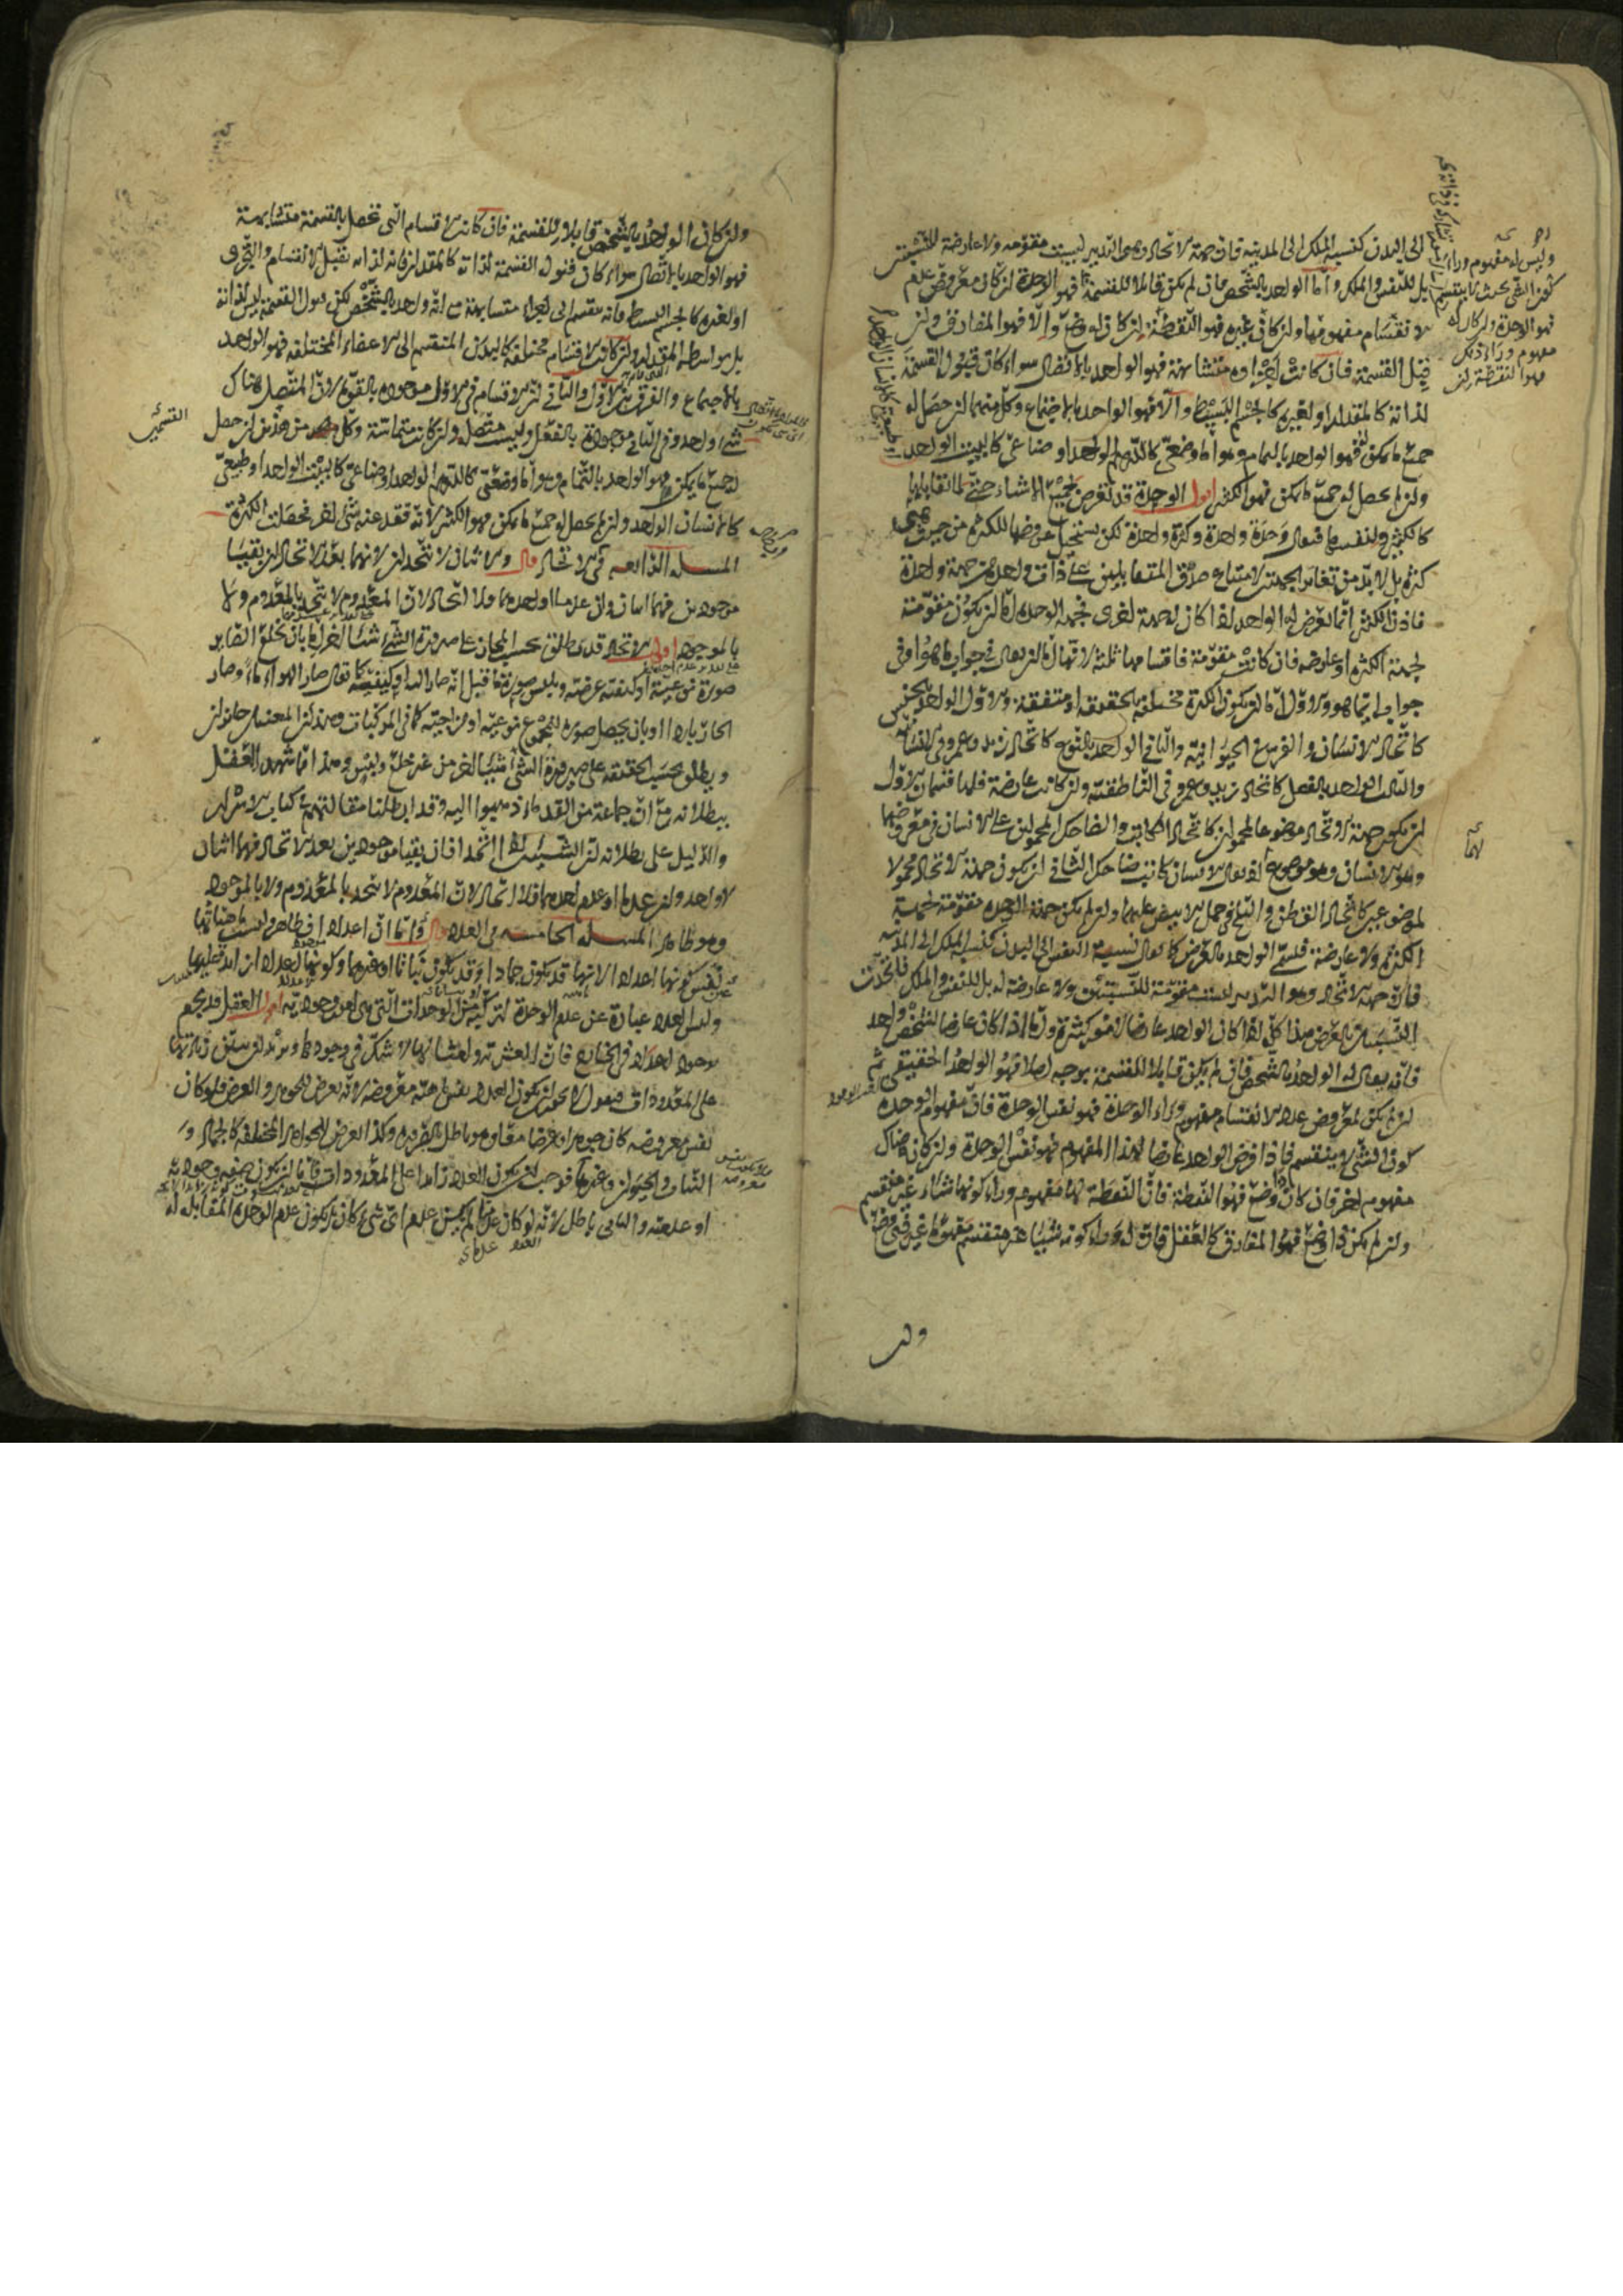 الى البدن كنسبة الملك الى المدينة فان جهة الاتحاد وهي التدبير ليست مقومة ولا عارضة للنسبتين
بل للنفس والملك واما الواحد بالشخص فان لم يكن قابلا للقسمة فهو الوحدة ان كان معروض عدم
الانقسام مفهومها وان كان غيره فهو النقطة ان كان له وضع والا فهو المفارق وان
قبل القسمة فان كانت اجزاوه متشابهة فهو الواحد بالاتصال سواء كان قبول القسمة
لذاته كالمقدار او لغيره كالجسم البسيط والا فهو الواحد بالاجتماع وكل منهما ان حصل له
جميع ما يمكن فهو الواحد بالتمام وهو اما وضعي كالدرهم الواحد او صناعي كالبيت الواحد
وان لم يحصل له جميع ما يمكن فهو الكثير اقول الوحدة قد تعرض لجميع الاشياء حتى لما تقابلها
كالكثير ولنفسها فيقال وحدة واحدة وكثرة واحدة لكن يستحيل عروضها للكثرة من حيث هي
كثرة بل لا بد من تغاير الجهتين لامتناع صدق المتقابلين على ذات واحدة من جهة واحدة
فاذن الكثير انما تعرض له الواحد اذا كان له جهة اخرى فجهة الوحدة اما ان يكون مقومة
لجهة الكثرة او عارضة فان كانت مقومة فاقسامها ثلثة لانها اما ان يقال في جواب ما هو او في
جواب ايما هو والاول اما ان يكون الكثرة مختلفة بالحقيقة او متفقة والاول الواحد بالجنس
كاتحاد الانسان والفرس في الحيوانية والثاني الواحد بالنوع كاتحاد زيد وعمرو في الانسانية
والثالث الواحد بالفصل كاتحاد زيد وعمرو في الناطقية وان كانت عارضة فلها قسمان الاول
ان يكون جهة الاتحاد موضوعا لمحمولين كاتحاد الكاتب والضاحك المحمولين على الانسان في معروضهما
وهو الانسان وهو موضوع اذ يقال الانسان كاتب ضاحك الثاني ان يكون جهة الاتحاد محمولا
لموضوعين كاتحاد القطن والثلج في حمل الابيض عليهما وان لم يكن جهة الوحدة مقومة لجهة
الكثرة ولا عارضة فلسمى الواحد بالعرض كما يقال نسبة النفس الى البدن كنسبة الملك الى المدينة
فان جهة الاتحاد وهو التدبير ليست مقومة للنسبتين ولا عارضة له بل للنفس والملك فاتحدت
النسبتان بالعرض هذا كله اذا كان الواحد عارضا لامور كثيرة واما اذا كان عارضا لشخص واحد
فانه يقال له الواحد بالشخص فان لم يكن قابلا للقسمة بوجه اصلا فهو الواحد الحقيقي ثم
ان لم يكن لمعروض عدم الانقسام مفهوم وراء الوحدة فهو نفس الوحدة فان مفهوم الوحدة
كون الشيء لا ينقسم فاذا فرض الواحد عارضا لهذا المفهوم فهو نفس الوحدة وان كان هناك
مفهوم اخر فان كان ذا وضع فهو النقطة فان النقطة لها مفهوم وراء كونها شيئا غير منقسم
وان لم يكن ذا وضع فهو المفارق كالعقل فان له وراء كونه شيئا غير منقسم مفهوما غير ذي وضع
وان
وان كان الواحد بالشخص قابلا للقسمة فان كانت الاقسام التي تحصل بالقسمة متشابهة
فهو الواحد بالاتصال سواء كان قبول القسمة لذاته كالمقدار فانه لذاته يقبل الانقسام والتجزي
او لغيره كالجسم البسيط فانه ينقسم الى اجزاء متشابهة مع انه واحد بالشخص لكن قبول القسمة ليس لذاته
بل بواسطة المقدار وان كانت الاقسام مختلفة كالبدن المنقسم الى الاعضاء المختلفة فهو الواحد
بالاجتماع والفرق بين الاول والثاني ان الاقسام في الاول موجودة بالقوة لان المتصل هناك
شيء واحد وفي الثاني موجودة بالفعل وليست متصلة وان كانت متماسة وكل من هذين ان حصل
له جميع ما يمكن فهو الواحد بالتمام وهو اما وضعي كالدرهم الواحد او صناعي كالبيت الواحد او طبيعي
كالانسان الواحد وان لم يحصل له جميع ما يمكن فهو الكثير لانه فقد عنه شيء اخر فحصلت الكثرة
المسئلة الرابعة في الاتحاد قال والاثنان لا يتحدان لانهما بعد الاتحاد ان بقيا
موجودين فهما اثنان وان عدما او احدهما فلا اتحاد لان المعدوم لا يتحد بالمعدوم ولا
بالموجود اقول الاتحاد قد يطلق بحسب المجاز على صيرورة الشيء شيئا اخر اما بان يخلع القابر
صورة نوعية او كيفية عرضية ويلبس صورة كما يقال صار الهواء ماء وصار
الحار باردا او بان يحصل صورة لمجموع نوعية او مزاجية كما في المركبات وهذان المعنيان جائزان
ويطلق بحسب الحقيقة على صيرورة الشيء شيئا اخر من غير خلع ولبس وهذا مما شهد العقل
ببطلانه مع ان جماعة من القدماء ذهبوا اليه وقد ابطلنا مقالتهم في كتاب الاسرار
والدليل على بطلانه ان الشيئين اذا اتحدا فان بقيا موجودين بعد الاتحاد فهما اثنان
لا واحد وان عدما او عدم احدهما فلا اتحاد لان المعدوم لا يتحد بالمعدوم ولا بالموجود
وهو ظاهر المسئلة الخامسة في العدد قال واما ان اعدادا في ظاهر وليست هيئاتها
نفس كونها اعدادا لانها قد يكون جمادا وقد يكون نباتا او غيرهما وكونها اعدادا امر زائد عليها
وليس العدد عبارة عن عدم الوحدة لتركبه من الوحدات التي هي امور وجودية اقول العقل قد يحكم
بوجود اعداد في الخارج فان العشرة وامثالها لا شك في وجودها ونريد ان نبين زيادتها
على المعدودات فنقول لا يجوز ان يكون العدد نفس ماهية معروضه لانه يعرض للجوهر والعرض فلو كان
نفس معروضه كان جوهرا وعرضا معا وهو باطل بالضرورة وكذا يعرض للجواهر المختلفة كالجماد و
النبات والحيوان وغيرها فوجب ان يكون العدد زائدا على المعدودات فاما ان يكون صفة وجودية
او عدمية والثاني باطل لانه لو كان عدما لم يكن عدم اي شيء كان بل يكون عدم الوحدة المقابلة له